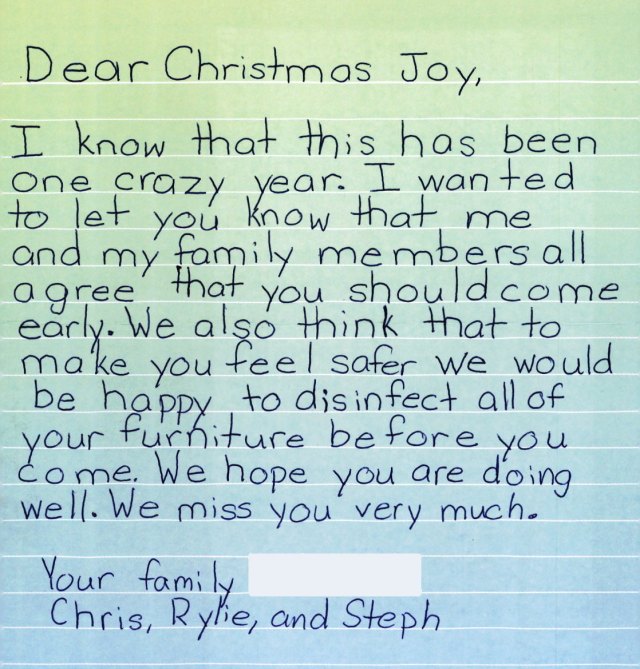 Dear Christmas Joy,
I know that this has been
one crazy year. I wanted
to let you know that me
and my family members all
agree that you should come
early. We also think that to
make you feel safer we would
be happy to disinfect all of
your furniture before you
come. We hope you are doing
well. We miss you very much.
Your family
Chris, Rylie, and Steph